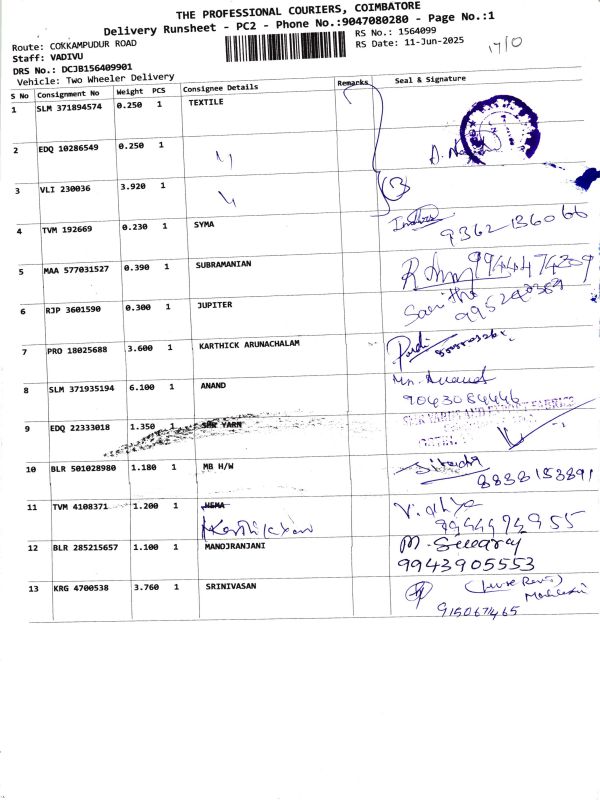 THE PROFESSIONAL COURIERS, COIMBATORE
Delivery Runsheet - PC2 - Phone No.:9047080280 - Page No.:1
Route: COKKAMPUDUR ROAD
RS No.: 1564099
Staff: VADIVU
RS Date: 11-Jun-2025
17/0
DRS No.: DCJB156409901
Vehicle: Two Wheeler Delivery
S No Consignment No Weight PCS Consignee Details Remarks Seal & Signature
1 SLM 371894574 0.250 1 TEXTILE
2 EDQ 10286549 0.250 1 〃
3 VLI 230036 3.920 1 〃 3
4 TVM 192669 0.230 1 SYMA
9362136066
5 MAA 577031527 0.390 1 SUBRAMANIAN 9944474309
6 RJP 3601590 0.300 1 JUPITER Saritha
7 PRO 18025688 3.600 1 KARTHICK ARUNACHALAM
8 SLM 371935194 6.100 1 ANAND Mr. Anand
9043084446
9 EDQ 22333018 1.350 1 SKR YARN
10 BLR 501028980 1.180 1 MB H/W
8838153891
11 TVM 4108371 1.200 1 HEMA Vidhya
12 BLR 285215657 1.100 1 MANOJRANJANI
9943905553
13 KRG 4700538 3.760 1 SRINIVASAN